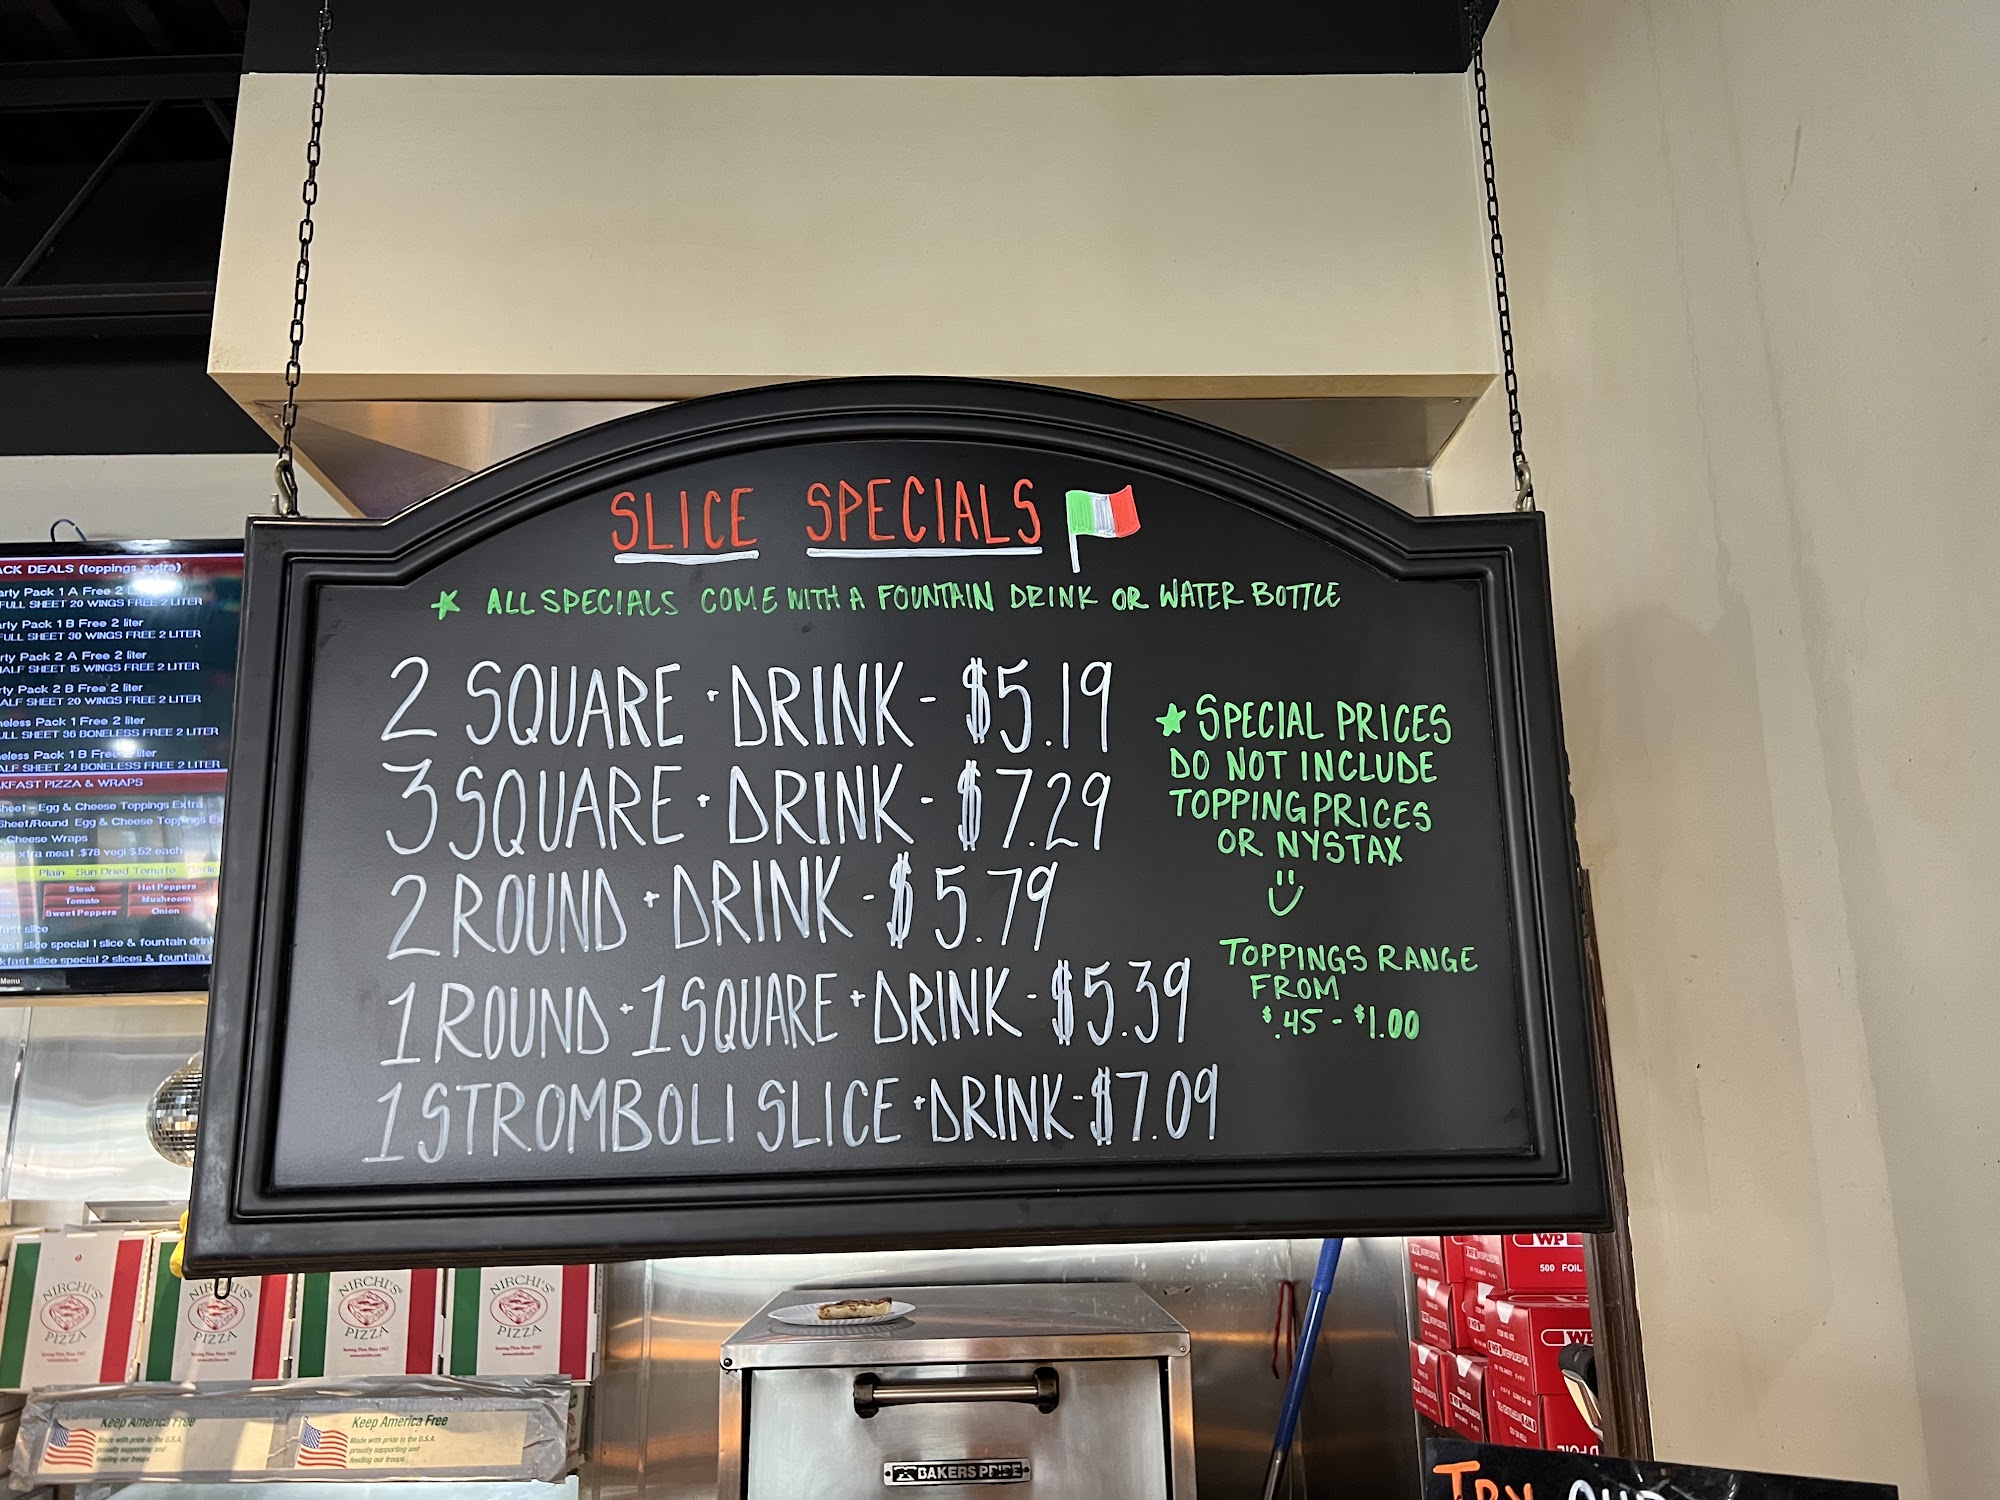 SLICE SPECIALS
★ ALL SPECIALS COME WITH A FOUNTAIN DRINK OR WATER BOTTLE
2 SQUARE + DRINK - $5.19
3 SQUARE + DRINK - $7.29
2 ROUND + DRINK - $5.79
1 ROUND + 1 SQUARE + DRINK - $5.39
1 STROMBOLI SLICE + DRINK - $7.09
★ SPECIAL PRICES
DO NOT INCLUDE
TOPPING PRICES
OR NYSTAX
TOPPINGS RANGE
FROM
$.45 - $1.00
ACK DEALS (toppings extra)
arty Pack 1 A Free 2
FULL SHEET 20 WINGS FREE 2 LITER
arty Pack 1 B Free 2 liter
FULL SHEET 30 WINGS FREE 2 LITER
rty Pack 2 A Free 2 liter
HALF SHEET 15 WINGS FREE 2 LITER
rty Pack 2 B Free 2 liter
ALF SHEET 20 WINGS FREE 2 LITER
neless Pack 1 Free 2 liter
ULL SHEET 36 BONELESS FREE 2 LITER
eless Pack 1 B Free 2 liter
ALF SHEET 24 BONELESS FREE 2 LITER
KFAST PIZZA & WRAPS
heet - Egg & Cheese Toppings Extra
Sheet/Round Egg & Cheese Toppings Ex
Cheese Wraps
xtra meat .$78 vegi $.52 each
Plain Sun Dried Tomato Garlic
Steak Hot Peppers
Tomato Mushroom
Sweet Peppers Onion
fast slice
ast slice special 1 slice & fountain drink
kfast slice special 2 slices & fountain
Menu
NIRCHI'S
PIZZA
Serving Pizza Since 1967
NIRCHI'S
PIZZA
NIRCHI'S
PIZZA
NIRCHI'S
PIZZA
Keep America Free
Made with pride in the U.S.A.
proudly supporting and
feeding our troops
Keep America Free
Made with pride in the U.S.A.
proudly supporting and
feeding our troops
BAKERS PRIDE
WP
500 FOIL
WP
TRY OUR